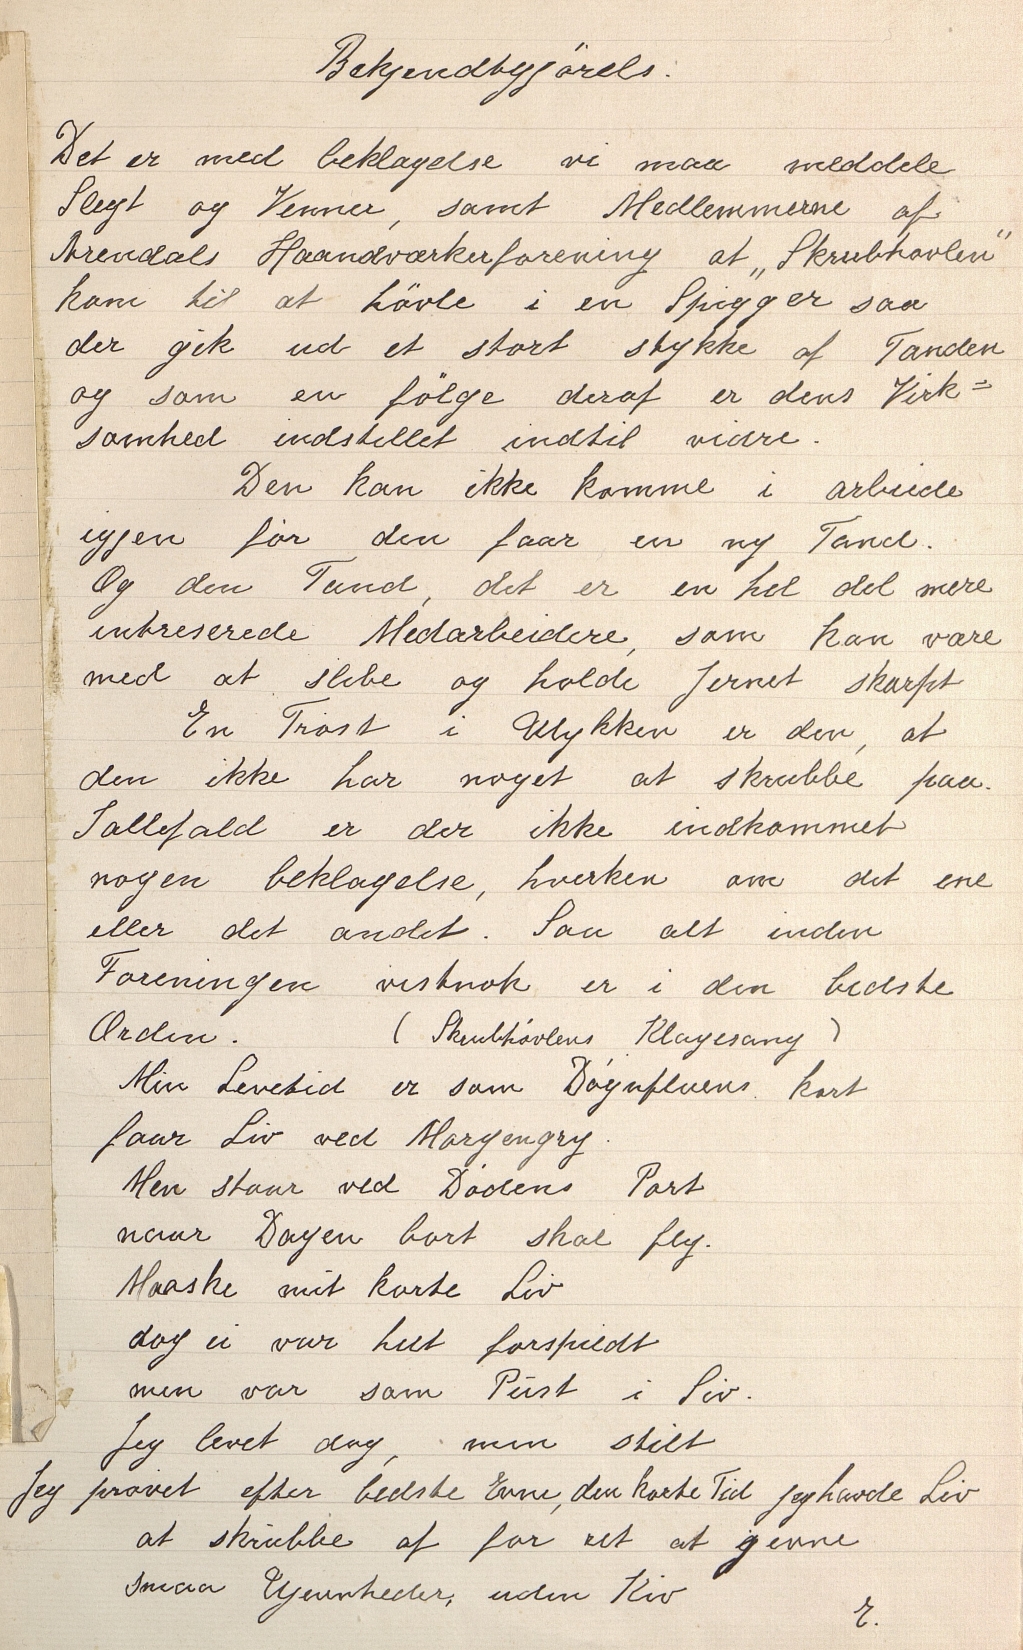 Bekjendtgjörels.
Det er med beklagelse vi maa meddele
Slegt og Venner, samt Medlemmerne af
Arendals Haandværkerforening at „Skrubhøvlen"
kom til at hövle i en Spigger saa
der gik ud et stort stykke af Tanden
og som en fölge deraf er dens Virk=
somhed indstillet indtil vidre.
Den kan ikke komme i arbeide
igjen før den faar en ny Tand.
Og den Tand, det er en hel del mere
intreserede Medarbeidere, som kan være
med at slibe og holde Jernet skarpt
En Trøst i Ulykken er den, at
den ikke har noget at skrubbe paa.
Iallefald er der ikke indkommet
nogen beklagelse, hverken om det ene
eller det andet. Saa alt inden
Foreningen vistnok er i den bedste
Orden. ( Skrubhøvlens Klagesang )
Min Levetid er som Døgnfluens kort
faar Liv ved Morgengry.
Men staar ved Dødens Port
naar Dagen bort skal fly.
Maaske mit korte Liv
dog ei var helt forspildt
men var som Püst i Siv.
Jeg levet dog, men stilt
Jeg prøvet efter bedste Evne, den korte Tid jeg havde Liv
at skrübbe af for ret at jevne
smaa Ujevnheder, uden Kiv
E.